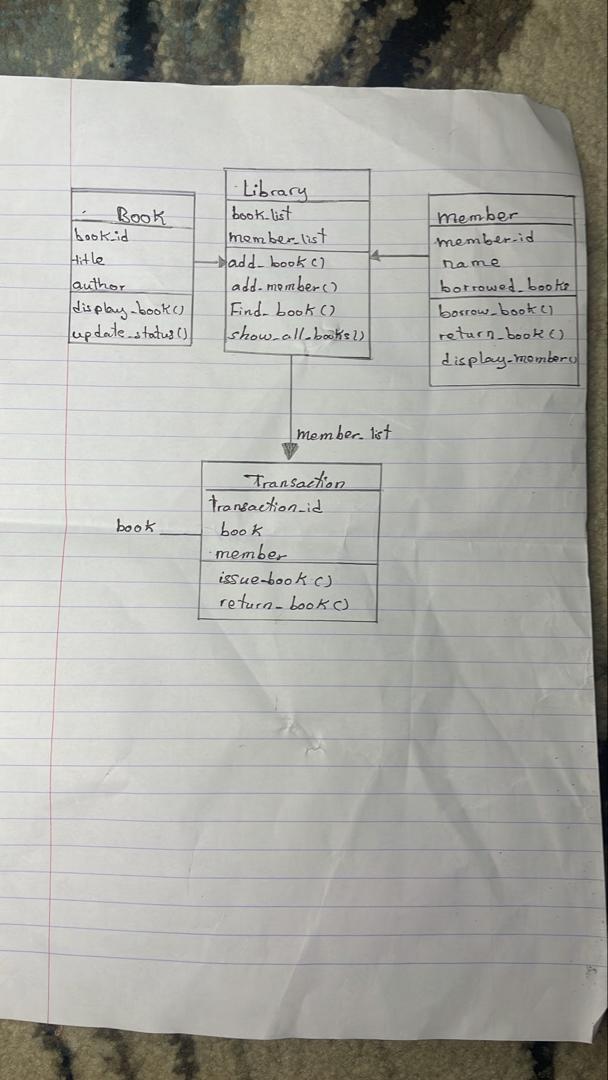 Book
book_id
title
author
display_book()
update_status()
Library
book_list
member_list
add_book()
add_member()
Find_book()
show_all_books()
member
member_id
name
borrowed_books
borrow_book()
return_book()
display_member()
member_list
Transaction
transaction_id
book
member
issue_book()
return_book()
book